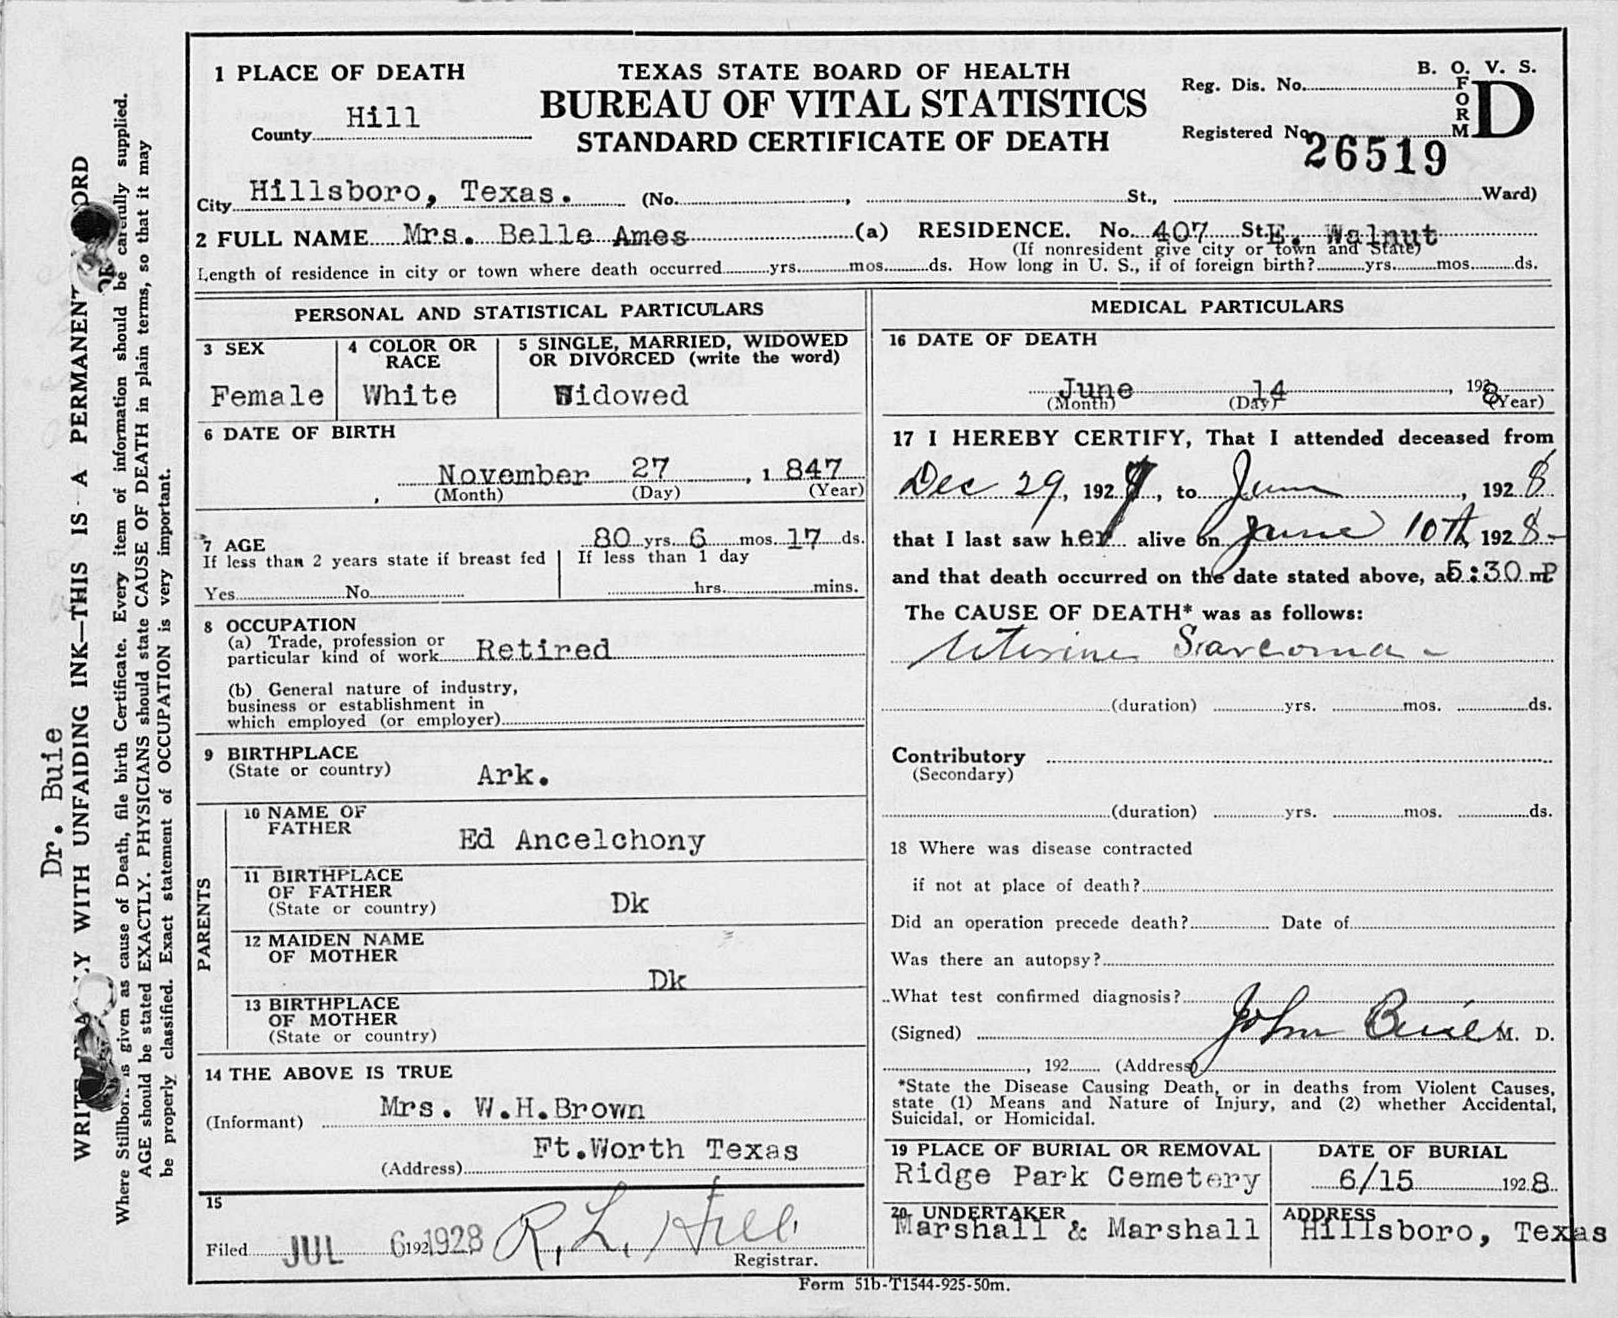 1 PLACE OF DEATH
County Hill
TEXAS STATE BOARD OF HEALTH
BUREAU OF VITAL STATISTICS
STANDARD CERTIFICATE OF DEATH
B. O. V. S.
FORM D
Reg. Dis. No.
Registered No. 26519
City Hillsboro, Texas. (No. , St., Ward)
2 FULL NAME Mrs. Belle Ames (a) RESIDENCE. No. 407 St. E. Walnut
(If nonresident give city or town and State)
Length of residence in city or town where death occurred yrs. mos. ds. How long in U. S., if of foreign birth? yrs. mos. ds.
PERSONAL AND STATISTICAL PARTICULARS
3 SEX
Female
4 COLOR OR RACE
White
5 SINGLE, MARRIED, WIDOWED
OR DIVORCED (write the word)
Widowed
6 DATE OF BIRTH
November 27, 1847
(Month) (Day) (Year)
7 AGE 80 yrs. 6 mos. 17 ds.
If less than 2 years state if breast fed
Yes No
If less than 1 day
hrs. mins.
8 OCCUPATION
(a) Trade, profession or
particular kind of work Retired
(b) General nature of industry,
business or establishment in
which employed (or employer)
9 BIRTHPLACE
(State or country) Ark.
PARENTS
10 NAME OF
FATHER Ed Ancelchony
11 BIRTHPLACE
OF FATHER
(State or country) Dk
12 MAIDEN NAME
OF MOTHER
Dk
13 BIRTHPLACE
OF MOTHER
(State or country)
14 THE ABOVE IS TRUE
(Informant) Mrs. W.H.Brown
(Address) Ft.Worth Texas
15
Filed JUL 6 192 1928 R. L. Hill
Registrar.
MEDICAL PARTICULARS
16 DATE OF DEATH
June 14, 1928
(Month) (Day) (Year)
17 I HEREBY CERTIFY, That I attended deceased from
Dec 29, 1927, to June, 1928
that I last saw her alive on June 10th, 1928-
and that death occurred on the date stated above, at 5:30 P m.
The CAUSE OF DEATH* was as follows:
Uterine Sarcoma -
(duration) yrs. mos. ds.
Contributory
(Secondary)
(duration) yrs. mos. ds.
18 Where was disease contracted
if not at place of death?
Did an operation precede death? Date of
Was there an autopsy?
What test confirmed diagnosis?
(Signed) John Buie M. D.
, 192 (Address)
*State the Disease Causing Death, or in deaths from Violent Causes,
state (1) Means and Nature of Injury, and (2) whether Accidental,
Suicidal, or Homicidal.
19 PLACE OF BURIAL OR REMOVAL
Ridge Park Cemetery
DATE OF BURIAL
6/15 1928
20 UNDERTAKER
Marshall & Marshall
ADDRESS
Hillsboro, Texas
Form 51b-T1544-925-50m.
Dr. Buie
WRITE WITH UNFAIDING INK—THIS IS A PERMANENT
Where Stillborn is given as cause of Death, file birth Certificate. Every item of information should be carefully supplied.
AGE should be stated EXACTLY. PHYSICIANS should state CAUSE OF DEATH in plain terms, so that it may
be properly classified. Exact statement of OCCUPATION is very important.